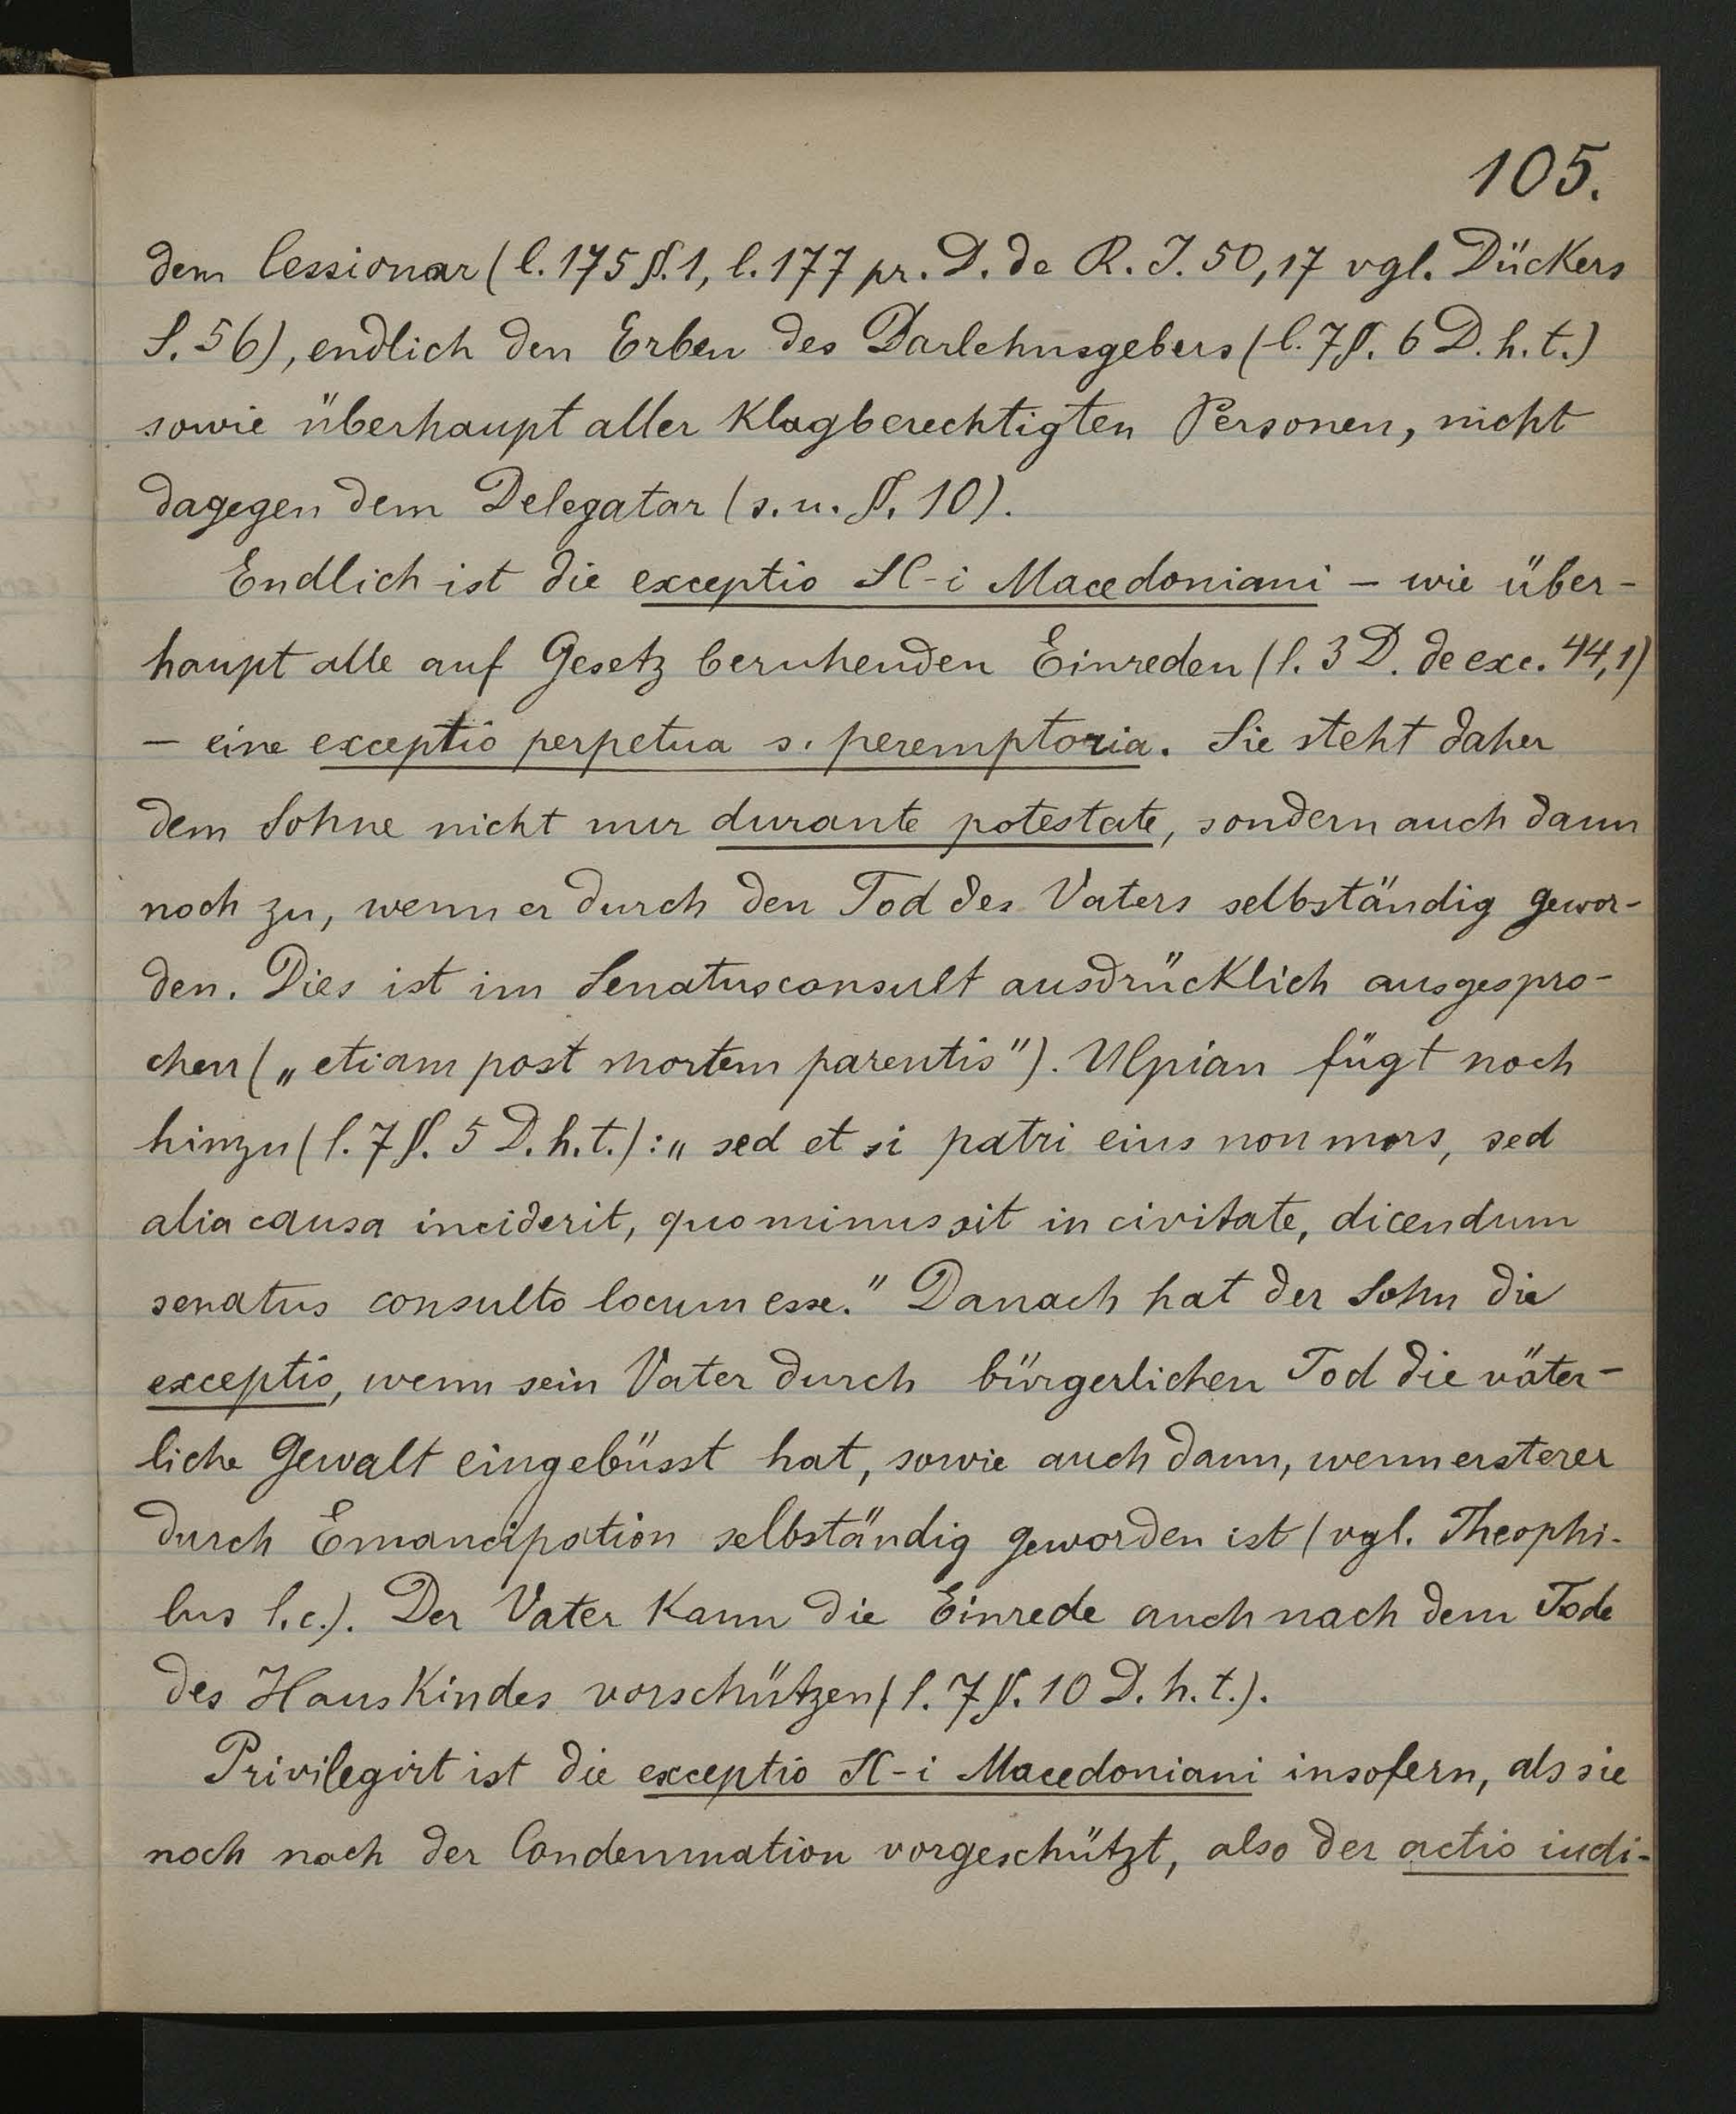 105.
dem Cessionar (l. 175 §. 1, l. 177 pr. D. de R. J. 50, 17 vgl. Dückers
S. 56), endlich den Erben des Darlehnsgebers (l. 7 §. 6 D. h. t.)
sowie überhaupt aller klagberechtigten Personen, nicht
dagegen dem Delegatar (s. u. §. 10).
Endlich ist die exceptio SC-i Macedoniani – wie über-
haupt alle auf Gesetz beruhenden Einreden (l. 3 D. de exc. 44, 1)
– eine exceptio perpetua s. peremptoria. Sie steht daher
dem Sohne nicht nur durante potestate, sondern auch dann
noch zu, wenn er durch den Tod des Vaters selbständig gewor-
den. Dies ist im Senatusconsult ausdrücklich ausgespro-
chen („etiam post mortem parentis"). Ulpian fügt noch
hinzu (l. 7 §. 5 D. h. t.): „sed et si patri eius non mors, sed
alia causa inciderit, quominus sit in civitate, dicendum
senatus consulto locum esse." Danach hat der Sohn die
exceptio, wenn sein Vater durch bürgerlichen Tod die väter-
liche Gewalt eingebüsst hat, sowie auch dann, wenn ersterer
durch Emancipation selbständig geworden ist (vgl. Theophi-
lus l. c.). Der Vater kann die Einrede auch nach dem Tode
des Hauskindes vorschützen (l. 7 §. 10 D. h. t.).
Privilegirt ist die exceptio SC-i Macedoniani insofern, als sie
noch nach der Condemnation vorgeschützt, also der actio iudi-